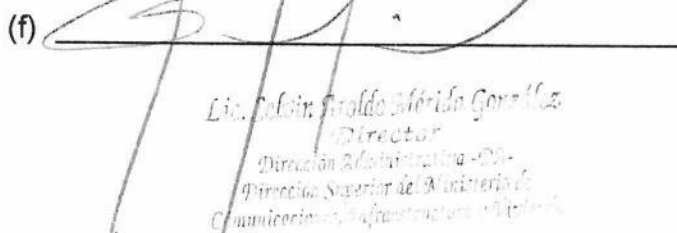 (f)
Lic. Mérida González
Director
Dirección Administrativa -DA-
Dirección Superior del Ministerio de
Comunicaciones, Infraestructura y Vivienda